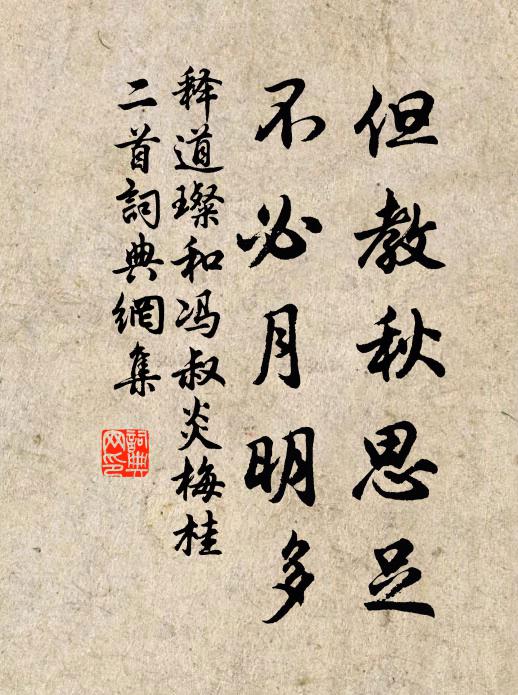 但教秋思足
不必月明多
释道璨和冯叔炎梅桂
二首詞典網集
詞典
网印